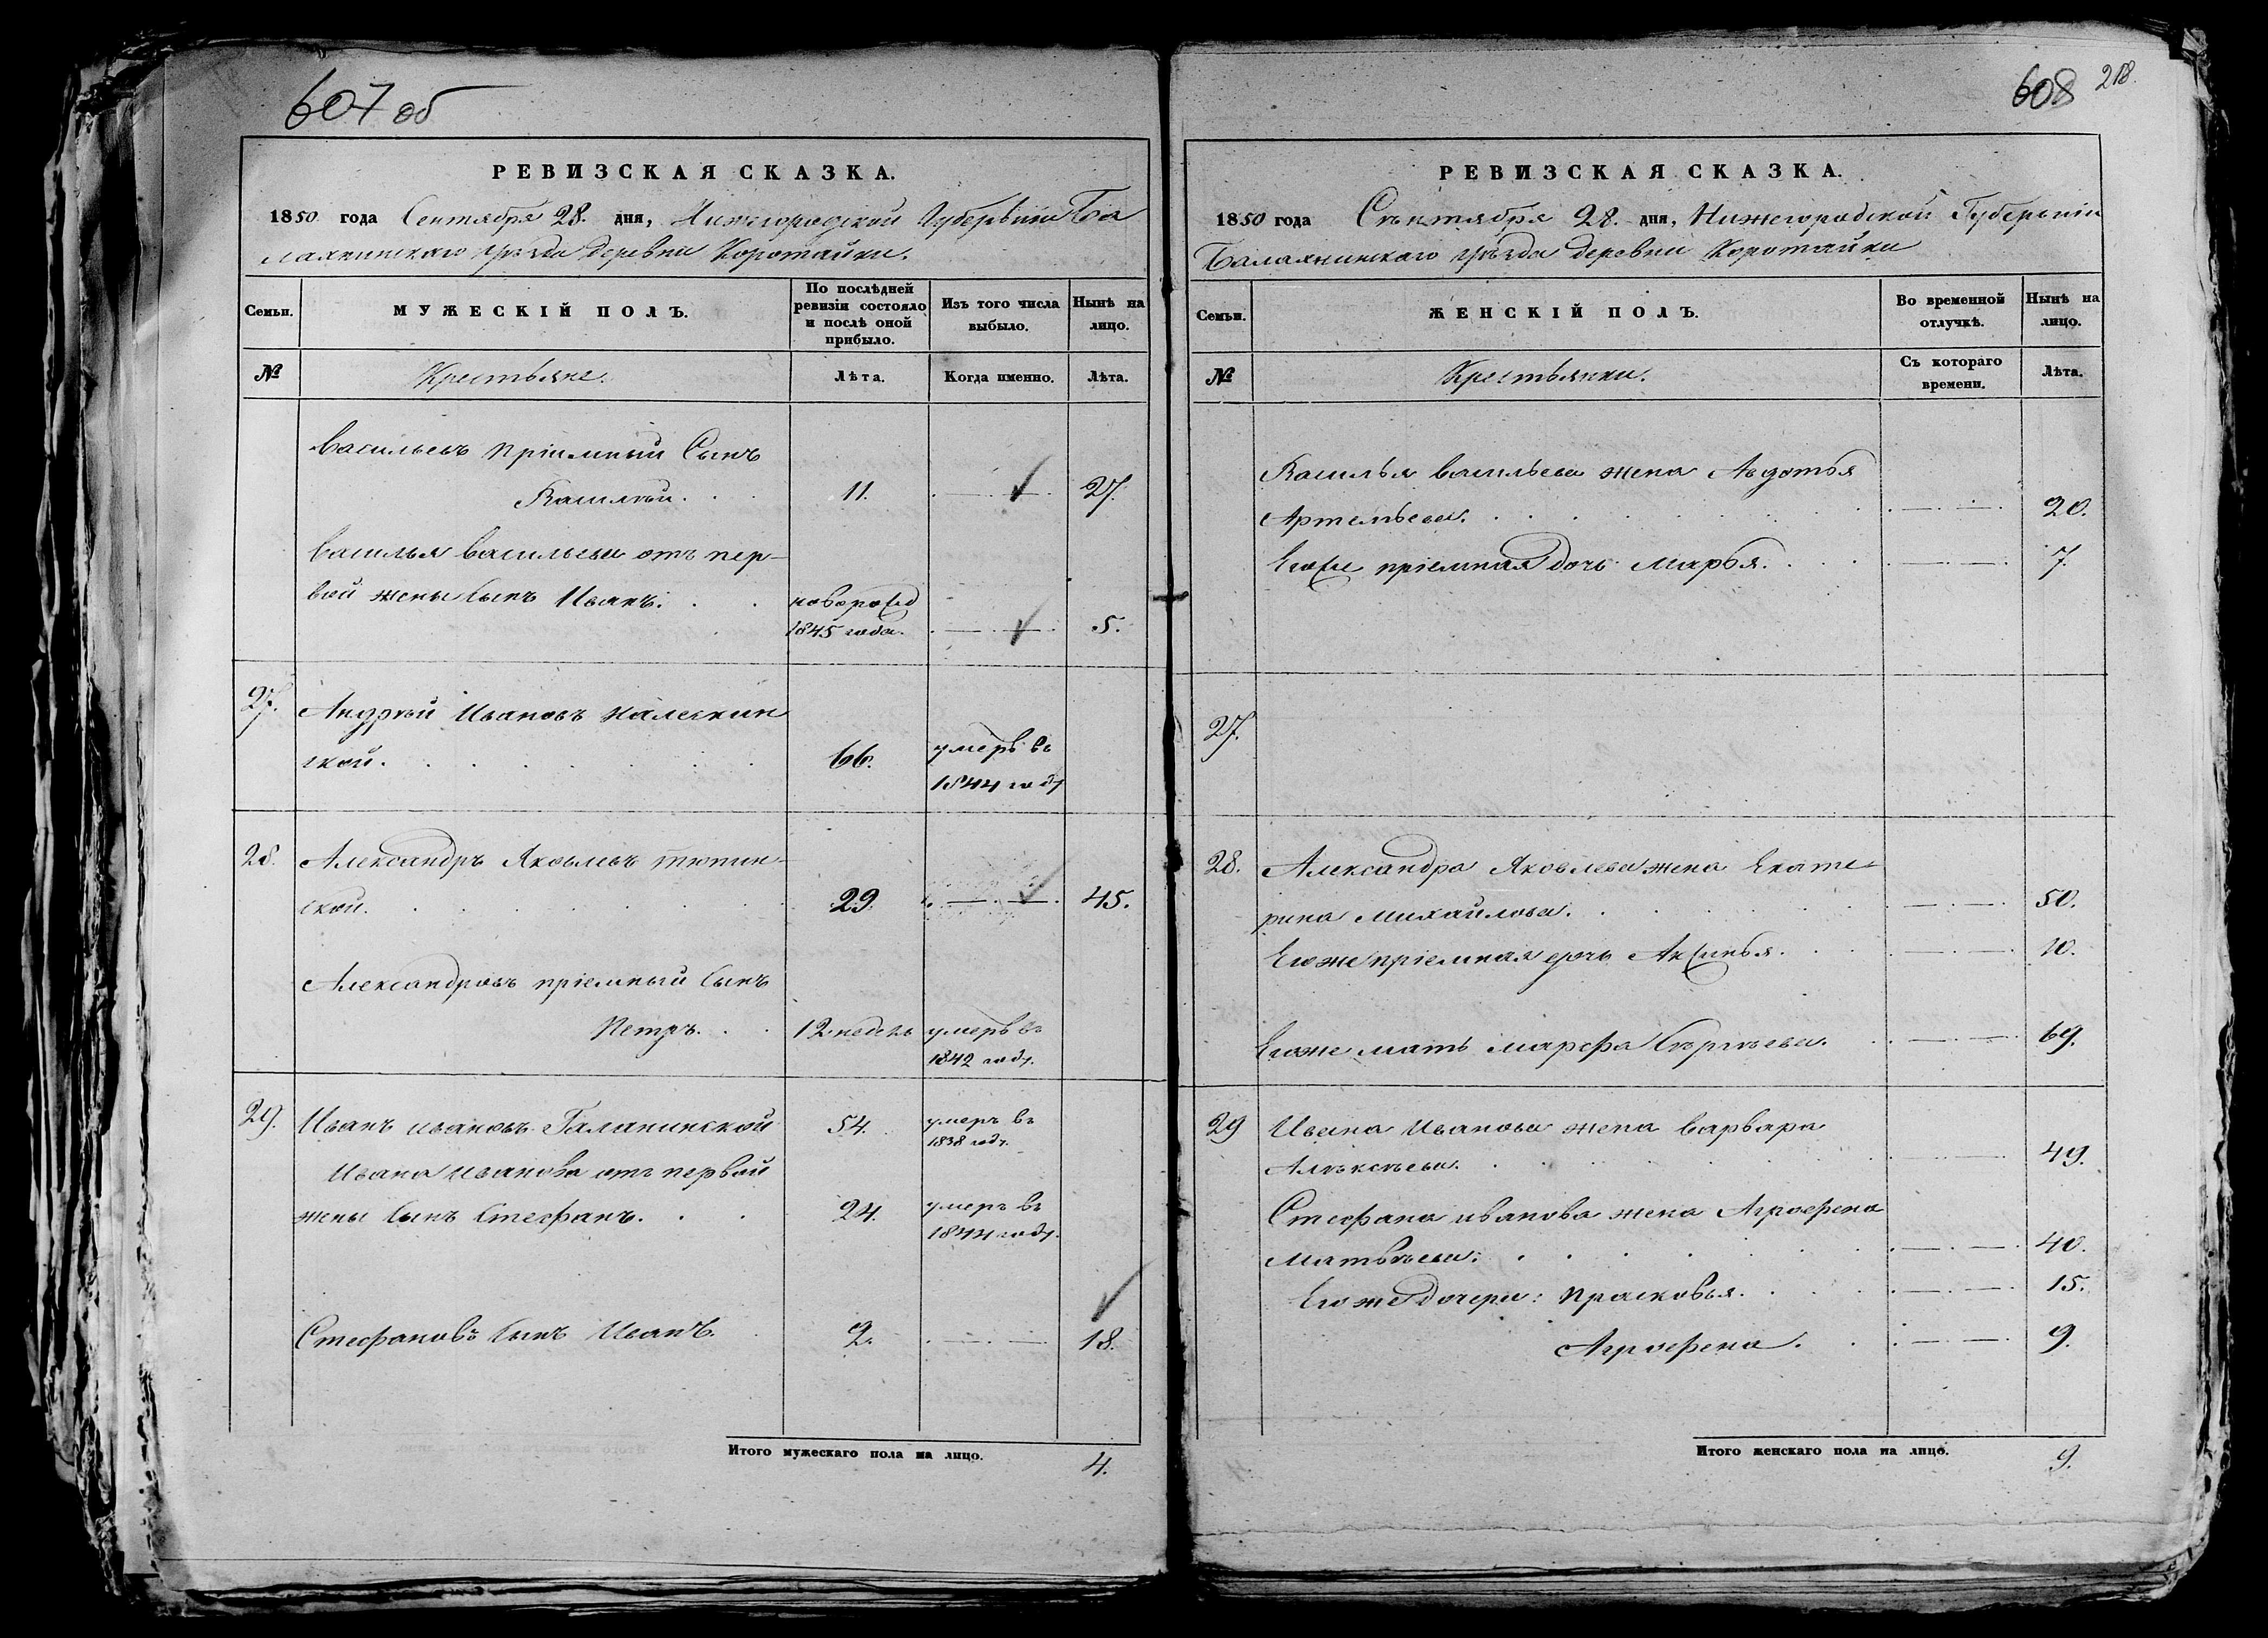 607 об
РЕВИЗСКАЯ СКАЗКА.
1850 года Сентября 28. дня, Нижегородской Губернiи Ба
лахнинскаго уѣзда деревни Коротайки.
Семьи.
МУЖЕСКIЙ ПОЛЪ.
По послѣдней
ревизiи состояло
и послѣ оной
прибыло.
Изъ того числа
выбыло.
Нынѣ на
лицо.
№
Крестьяне.
Лѣта.
Когда именно.
Лѣта.
Васильевъ прiимный Сынъ
Василѣй. 11. 27.
Василья Васильева отъ пер-
вой жены сынъ Иванъ. новорожд
1845 года. 5.
27. Андрѣй Ивановъ
ской. 66. умеръ въ
1844 году
28. Александръ Яковлевъ тюпин-
ской. 29. 45.
Александровъ прiемный сынъ
Петръ. 12 недель умеръ въ
1842 году.
29. Иванъ Ивановъ Галанинской 54. умеръ въ
1838 году.
Ивана Иванова отъ первой
жены сынъ Стефанъ. 24. умеръ въ
1844 году.
Стефановъ сынъ Иванъ. 2. 18.
Итого мужескаго пола на лицо. 4.
608 218.
РЕВИЗСКАЯ СКАЗКА.
1850 года Сѣнтября 28. дня, Нижегородской Губернiи
Балахнинскаго уѣзда деревни Коротайки
Семьи.
ЖЕНСКIЙ ПОЛЪ.
Во временной
отлучкѣ.
Нынѣ на
лицо.
№
Крестьянки.
Съ котораго
времени.
Лѣта.
Василья Васильева жена Авдотья
Артемьева. 20.
Егоже прiемная дочь Марья. 7.
27.
28. Александра Яковлева жена Екате-
рина Михайлова. 50.
Егоже прiемная дочь Аксинья. 10.
Егоже мать Марфа Сѣргѣева. 69.
29 Ивана Иванова жена Варвара
Алѣксѣева. 49.
Стефана Иванова жена Агрофена
Матвѣева. 40.
Егоже дочери: Прасковья. 15.
Агрофена. 9.
Итого женскаго пола на лицо. 9.